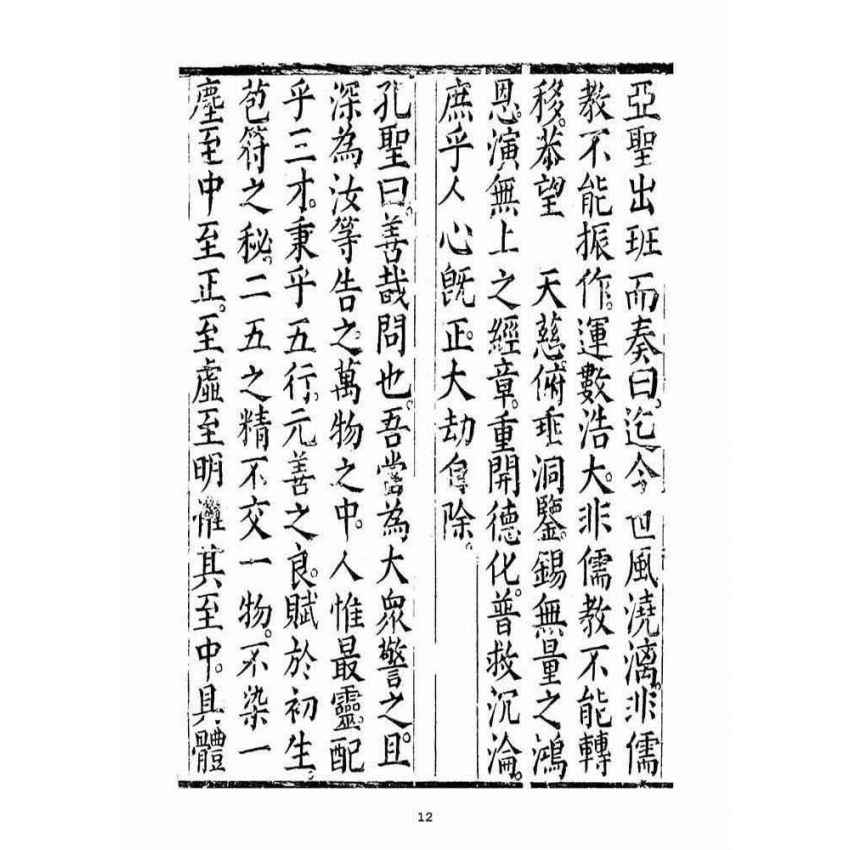 亞聖出班而奏曰。迄今世風澆漓。非儒
教不能振作。運數浩大。非儒教不能轉
移。恭望　天慈。俯垂洞鑒。錫無量之鴻
恩。演無上之經章。重開德化。普救沉淪。
庶乎人心旣正。大劫自除。
孔聖曰。善哉問也。吾當為大眾警之。且
深為汝等告之。萬物之中。人惟最靈。配
乎三才。秉乎五行。元善之良。賦於初生。
苞符之秘。二五之精不交一物。不染一
塵至中至正。至虛至明惟其至中。具體
12